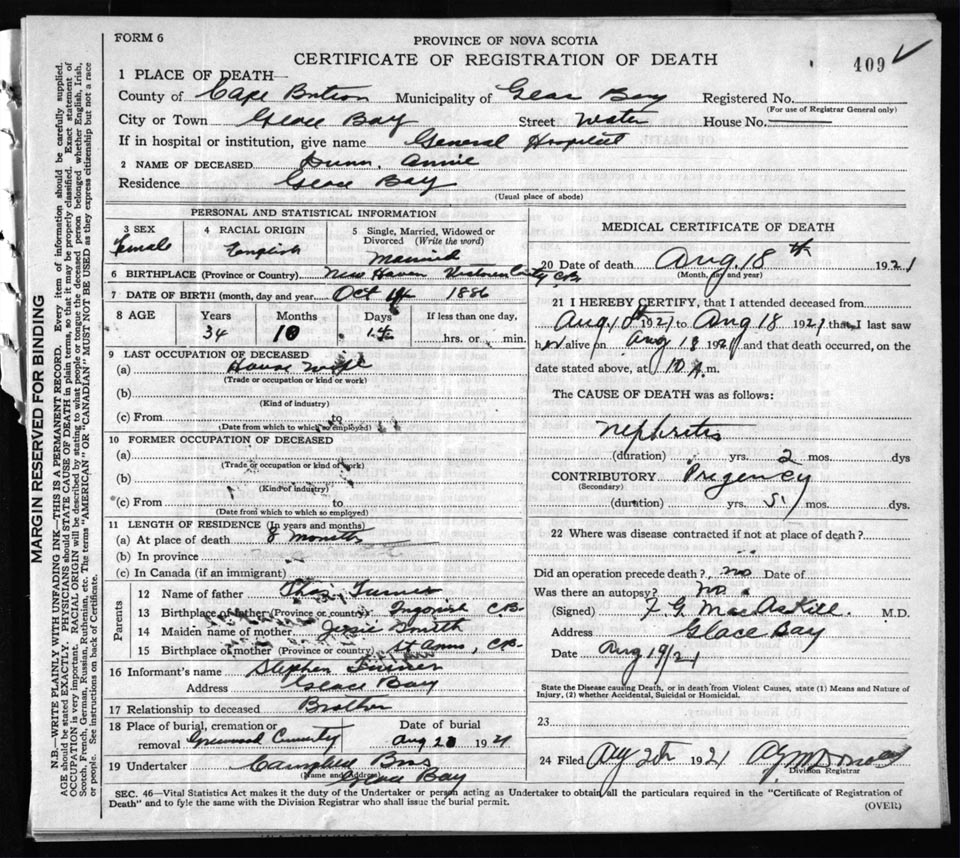 FORM 6
PROVINCE OF NOVA SCOTIA
CERTIFICATE OF REGISTRATION OF DEATH
409 ✓
MARGIN RESERVED FOR BINDING
N.B.—WRITE PLAINLY WITH UNFADING INK—THIS IS A PERMANENT RECORD. Every item of information should be carefully supplied.
AGE should be stated EXACTLY. PHYSICIANS should STATE CAUSE OF DEATH in plain terms, so that it may be properly classified. Exact statement of
OCCUPATION is very important. RACIAL ORIGIN will be described by stating to what people or tongue the deceased person belonged whether English, Irish,
Scotch, French, German, Russian, Ruthenian, etc. The terms "AMERICAN" OR "CANADIAN" MUST NOT BE USED as they express citizenship but not a race
or people. See instructions on back of Certificate.
1 PLACE OF DEATH—
County of Cape Breton Municipality of Glace Bay Registered No.
(For use of Registrar General only)
City or Town Glace Bay Street Water House No.
If in hospital or institution, give name General Hospital
2 NAME OF DECEASED Dunn, Annie
Residence Glace Bay
(Usual place of abode)
PERSONAL AND STATISTICAL INFORMATION
3 SEX Female
4 RACIAL ORIGIN English
5 Single, Married, Widowed or Divorced (Write the word) Married
6 BIRTHPLACE (Province or Country) New Haven Victoria C.B.
7 DATE OF BIRTH (month, day and year) Oct 1886
8 AGE Years Months Days If less than one day,
34 10 hrs. or min.
9 LAST OCCUPATION OF DECEASED
(a) House wife
(Trade or occupation or kind of work)
(b)
(Kind of industry)
(c) From to
(Date from which to which so employed)
10 FORMER OCCUPATION OF DECEASED
(a)
(Trade or occupation or kind of work)
(b)
(Kind of industry)
(c) From to
(Date from which to which so employed)
11 LENGTH OF RESIDENCE (In years and months)
(a) At place of death 8 months
(b) In province
(c) In Canada (if an immigrant)
Parents
12 Name of father Turner
13 Birthplace of father (Province or country) Ingonish C.B.
14 Maiden name of mother Smith
15 Birthplace of mother (Province or country) St Anns, C.B.
16 Informant's name Stephen Turner
Address Glace Bay
17 Relationship to deceased Brother
18 Place of burial, cremation or removal Greenwood Date of burial Aug 1921
19 Undertaker Campbell Bros
(Name and Address) Glace Bay
MEDICAL CERTIFICATE OF DEATH
20 Date of death Aug. 18th 1921
(Month, day and year)
21 I HEREBY CERTIFY, that I attended deceased from
Aug 1921 to Aug 18 1921 that I last saw
her alive on Aug 18 1921 and that death occurred, on the
date stated above, at 10 A.m.
The CAUSE OF DEATH was as follows:
Nephritis
(duration) yrs. 2 mos. dys
CONTRIBUTORY Pregency
(Secondary)
(duration) yrs. 5 mos. dys.
22 Where was disease contracted if not at place of death?
Did an operation precede death? no Date of
Was there an autopsy? No.
(Signed) F G MacAskill. M.D.
Address Glace Bay
Date Aug 19/21
State the Disease causing Death, or in death from Violent Causes, state (1) Means and Nature of
Injury, (2) whether Accidental, Suicidal or Homicidal.
23
24 Filed 1921
Division Registrar
SEC. 46—Vital Statistics Act makes it the duty of the Undertaker or person acting as Undertaker to obtain all the particulars required in the "Certificate of Registration of
Death" and to fyle the same with the Division Registrar who shall issue the burial permit.
(OVER)